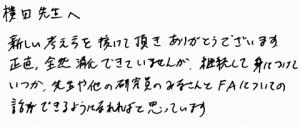 横田先生へ
新しい考え方を授けて頂きありがとうございます
正直、全然消化できていませんが、継続して身につけて
いつか、先生や他の研究員のみなさんとFAについての
話ができるようになれればと思っています